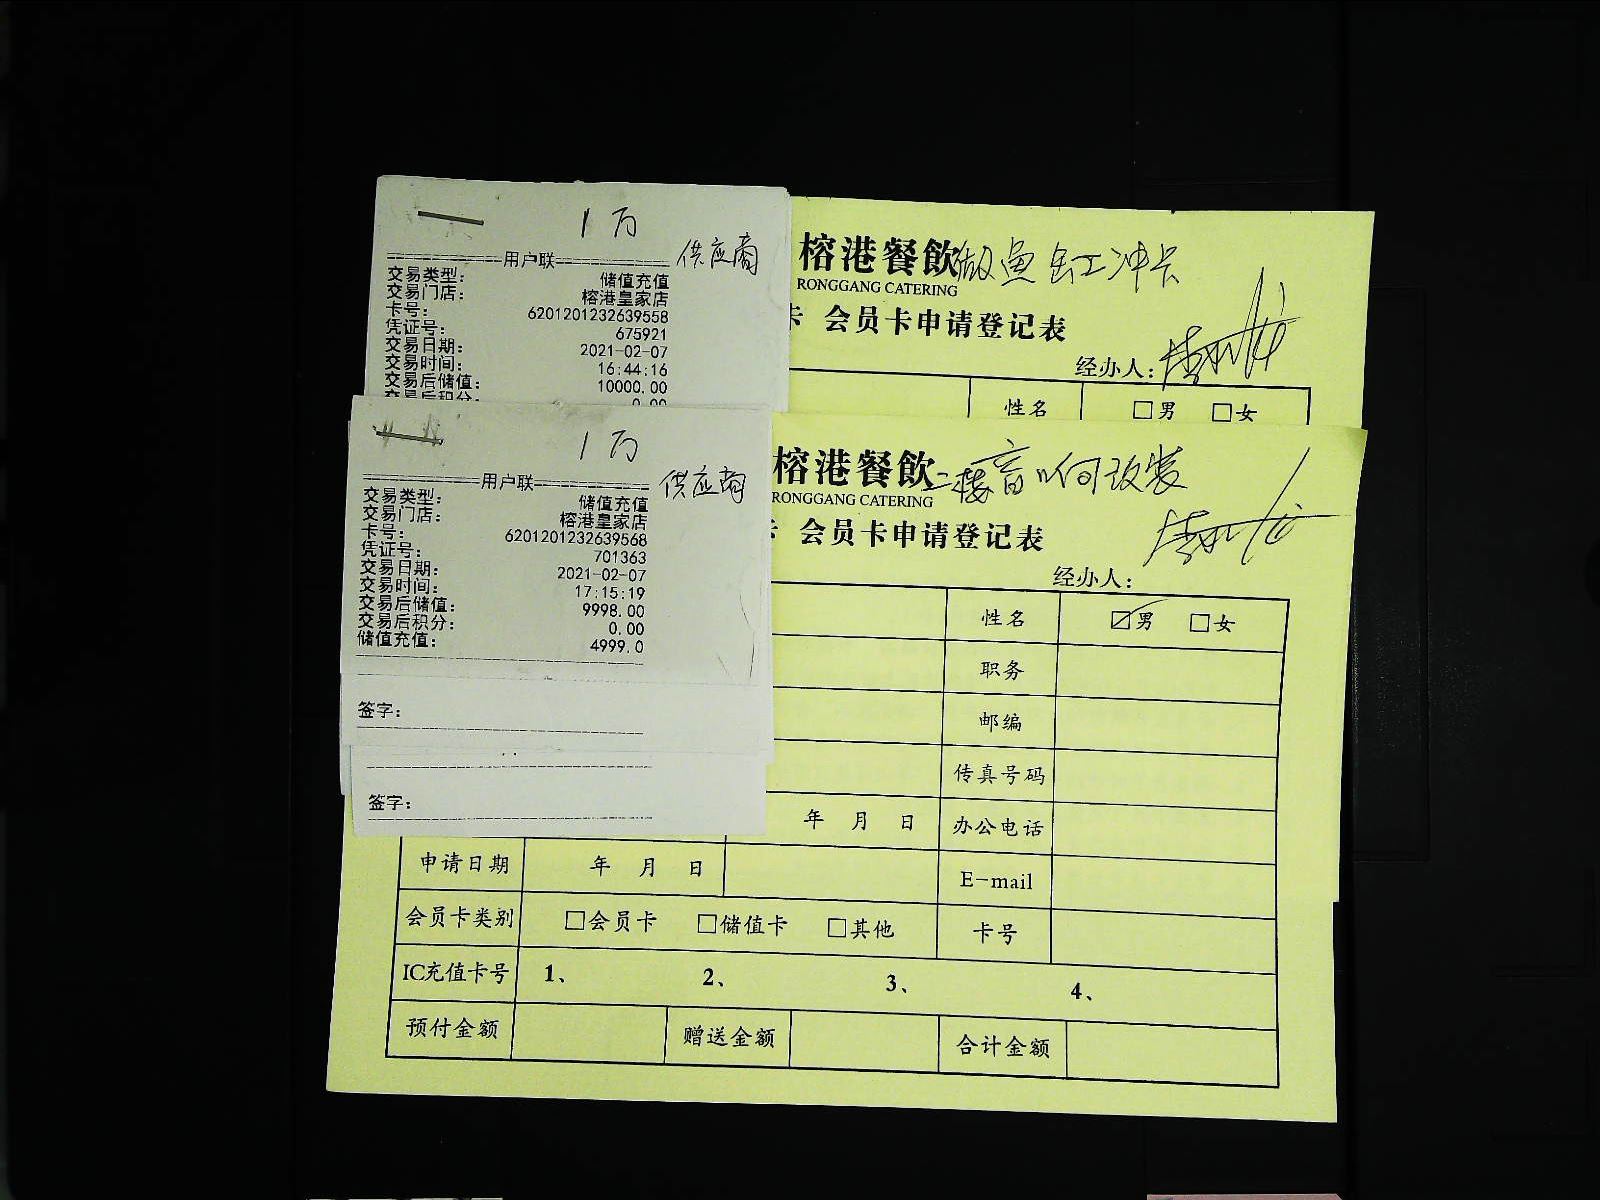 1万
供应商
用户联
交易类型： 储值充值
交易门店： 榕港皇家店
卡号： 6201201232639558
凭证号： 675921
交易日期： 2021-02-07
交易时间： 16:44:16
交易后储值： 10000.00
交易后积分： 0.00
榕港餐飲 做鱼缸冲卡
RONGGANG CATERING
卡 会员卡申请登记表
经办人：
性名 □男 □女
1万
供应商
用户联
交易类型： 储值充值
交易门店： 榕港皇家店
卡号： 6201201232639568
凭证号： 701363
交易日期： 2021-02-07
交易时间： 17:15:19
交易后储值： 9998.00
交易后积分： 0.00
储值充值： 4999.0
签字：
签字：
榕港餐飲 二楼 改装
RONGGANG CATERING
卡 会员卡申请登记表
经办人：
性名 ☑男 □女
职务
邮编
传真号码
年 月 日 办公电话
申请日期 年 月 日 E-mail
会员卡类别 □会员卡 □储值卡 □其他 卡号
IC充值卡号 1、 2、 3、 4、
预付金额 赠送金额 合计金额